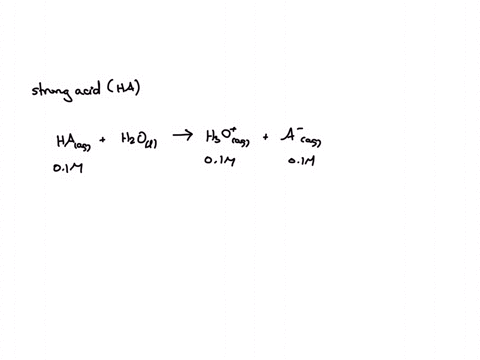 strong acid (HA)
HA(aq) + H2O(l) → H3O+(aq) + A-(aq)
0.1M 0.1M 0.1M